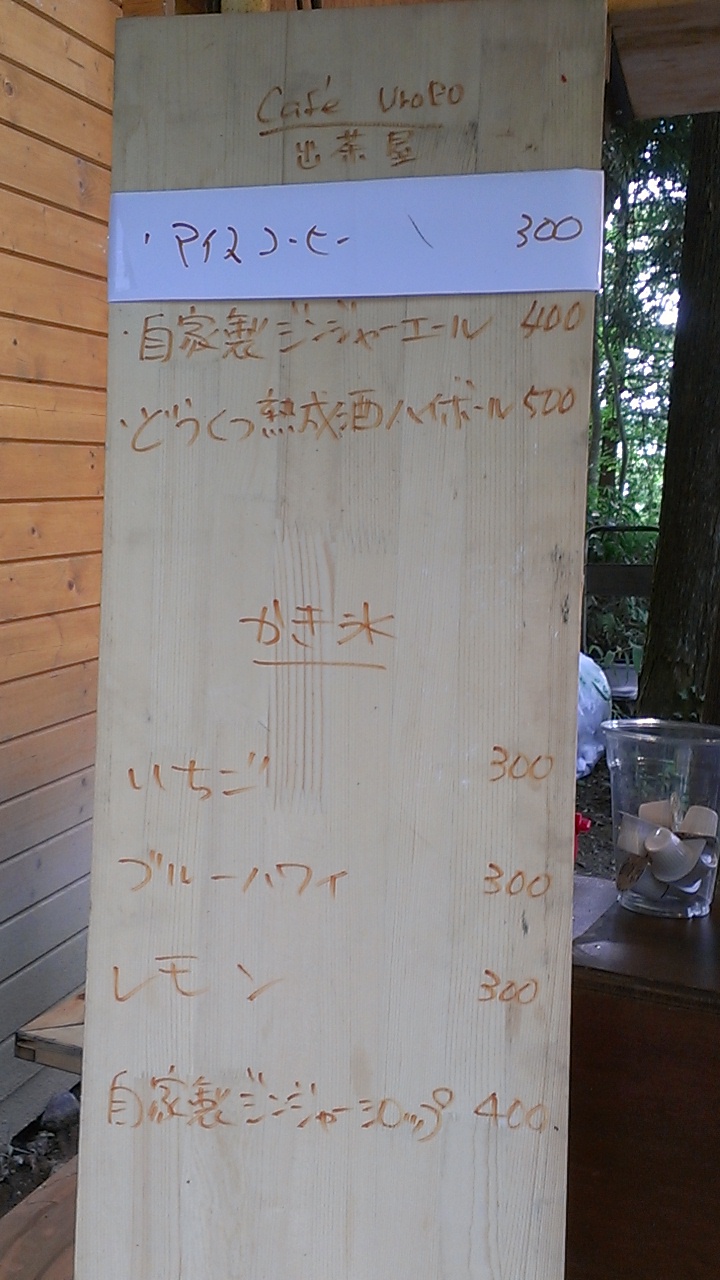 Café UroKO
出茶屋
・アイスコーヒー \ 300
・自家製ジンジャーエール 400
・どうくつ熟成酒ハイボール 500
かき氷
いちご 300
ブルーハワイ 300
レモン 300
自家製ジンジャーシロップ 400